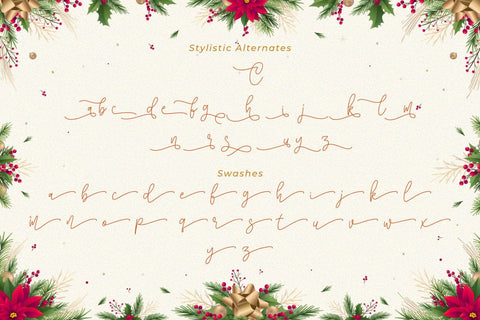 Stylistic Alternates
C
a b c d e f g h i j k l m
n r s u y z
Swashes
a b c d e f g h i j k l
m n o p q r s t u v w x
y z